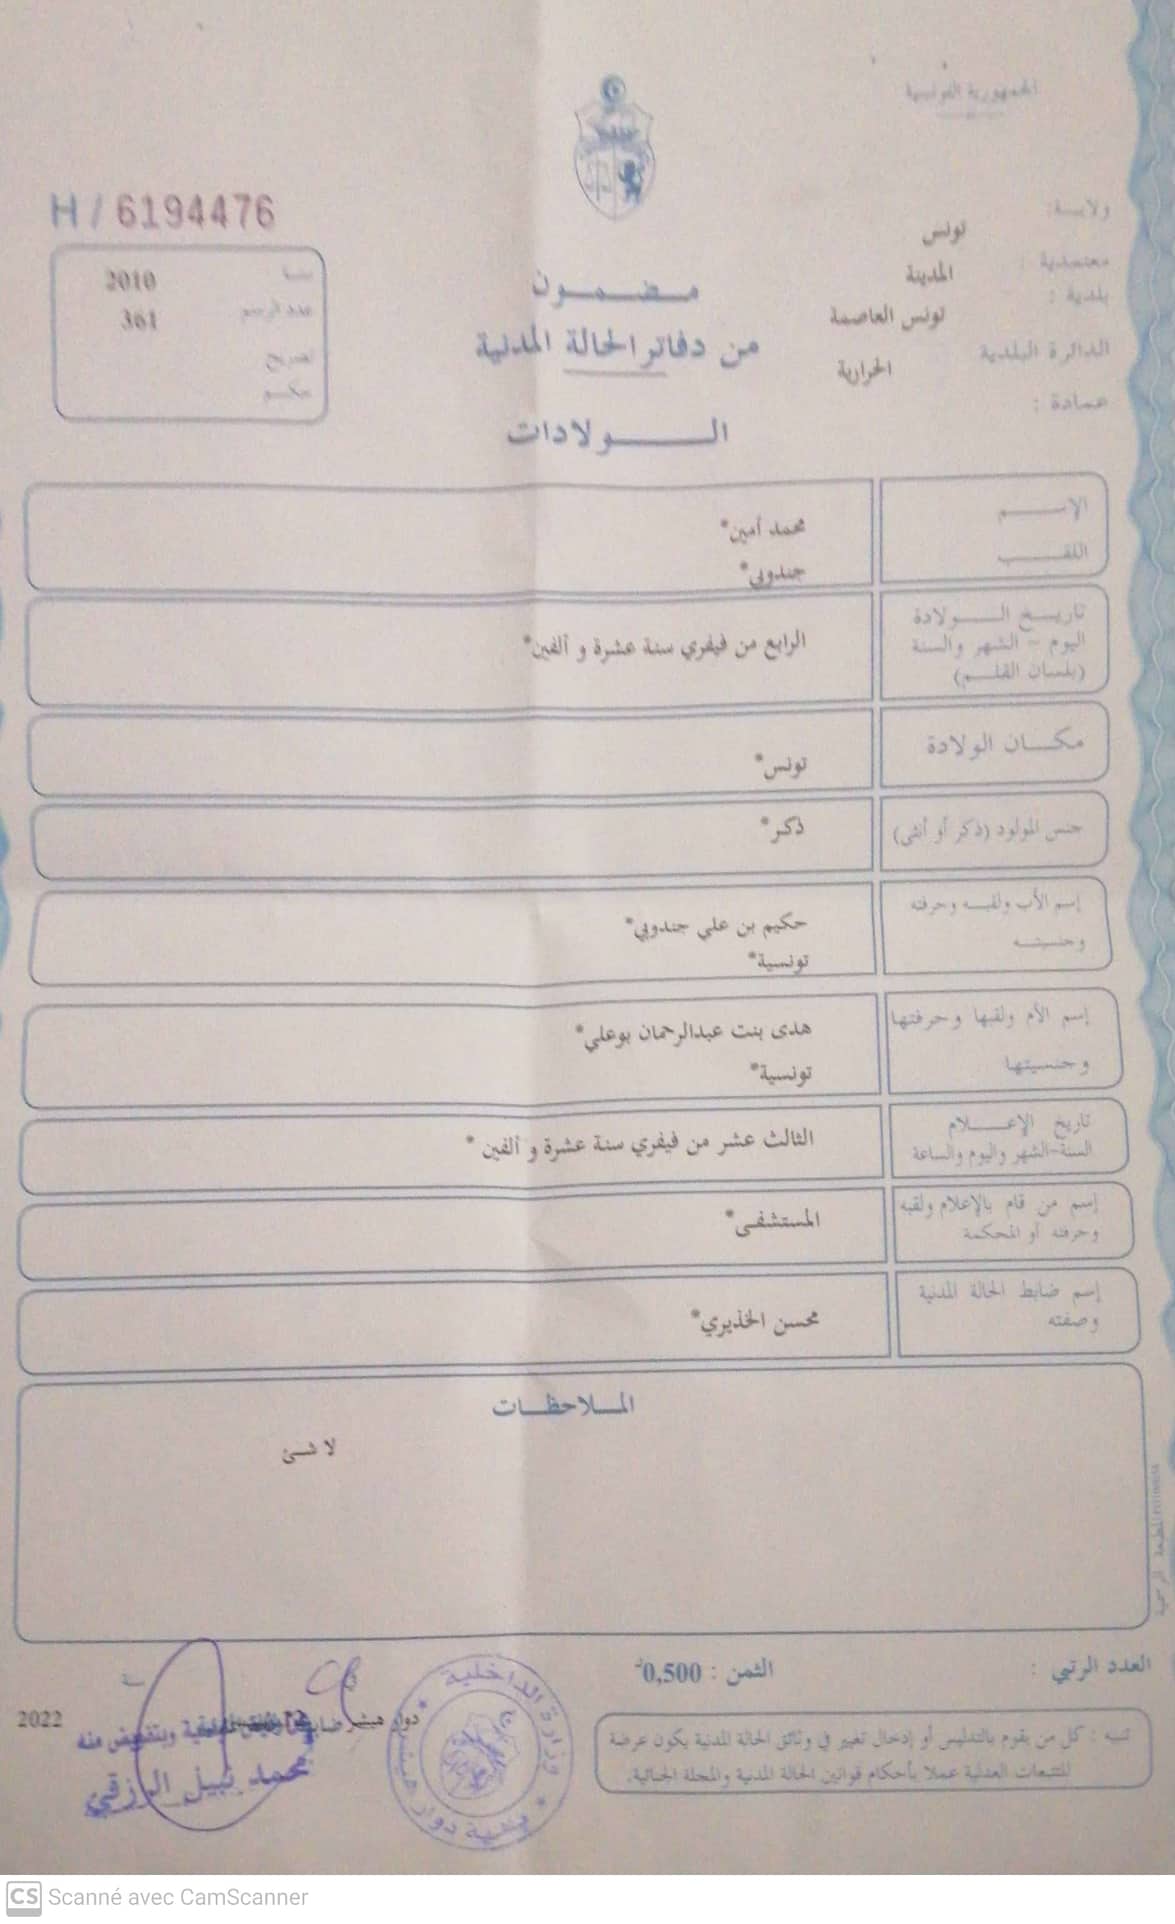 الجمهورية التونسية
ولاية:
تونس
معتمدية :
المدينة
بلدية :
تونس العاصمة
الدائرة البلدية
الحرارية
عمادة :
H / 6194476
سنة 2010
عدد الرسم 361
تصريح
حكم
مضمون
من دفاتر الحالة المدنية
الولادات
الإسم
محمد أمين*
اللقب
جندوبي*
تاريخ الولادة
اليوم - الشهر والسنة
(بلسان القلم)
الرابع من فيفري سنة عشرة و ألفين*
مكان الولادة
تونس*
جنس المولود (ذكر أو أنثى)
ذكر*
إسم الأب ولقبه وحرفته
وجنسيته
حكيم بن علي جندوبي*
تونسية*
إسم الأم ولقبها وحرفتها
وجنسيتها
هدى بنت عبدالرحمان بوعلي*
تونسية*
تاريخ الإعلام
السنة-الشهر واليوم والساعة
الثالث عشر من فيفري سنة عشرة و ألفين *
إسم من قام بالإعلام ولقبه
وحرفته أو المحكمة
المستشفى*
إسم ضابط الحالة المدنية
وصفته
محسن الخذيري*
الملاحظات
لا شئ
العدد الرتبي :
الثمن : 0,500د
تنبيه : كل من يقوم بالتدليس أو إدخال تغيير في وثائق الحالة المدنية يكون عرضة
للتتبعات العدلية عملا بأحكام قوانين الحالة المدنية والمجلة الجنائية.
وزارة الداخلية
بلدية دوار هيشر
دوار هيشر
2022
وبتفويض منه
محمد نبيل الرزقي
المطبعة الرسمية
CS Scanné avec CamScanner